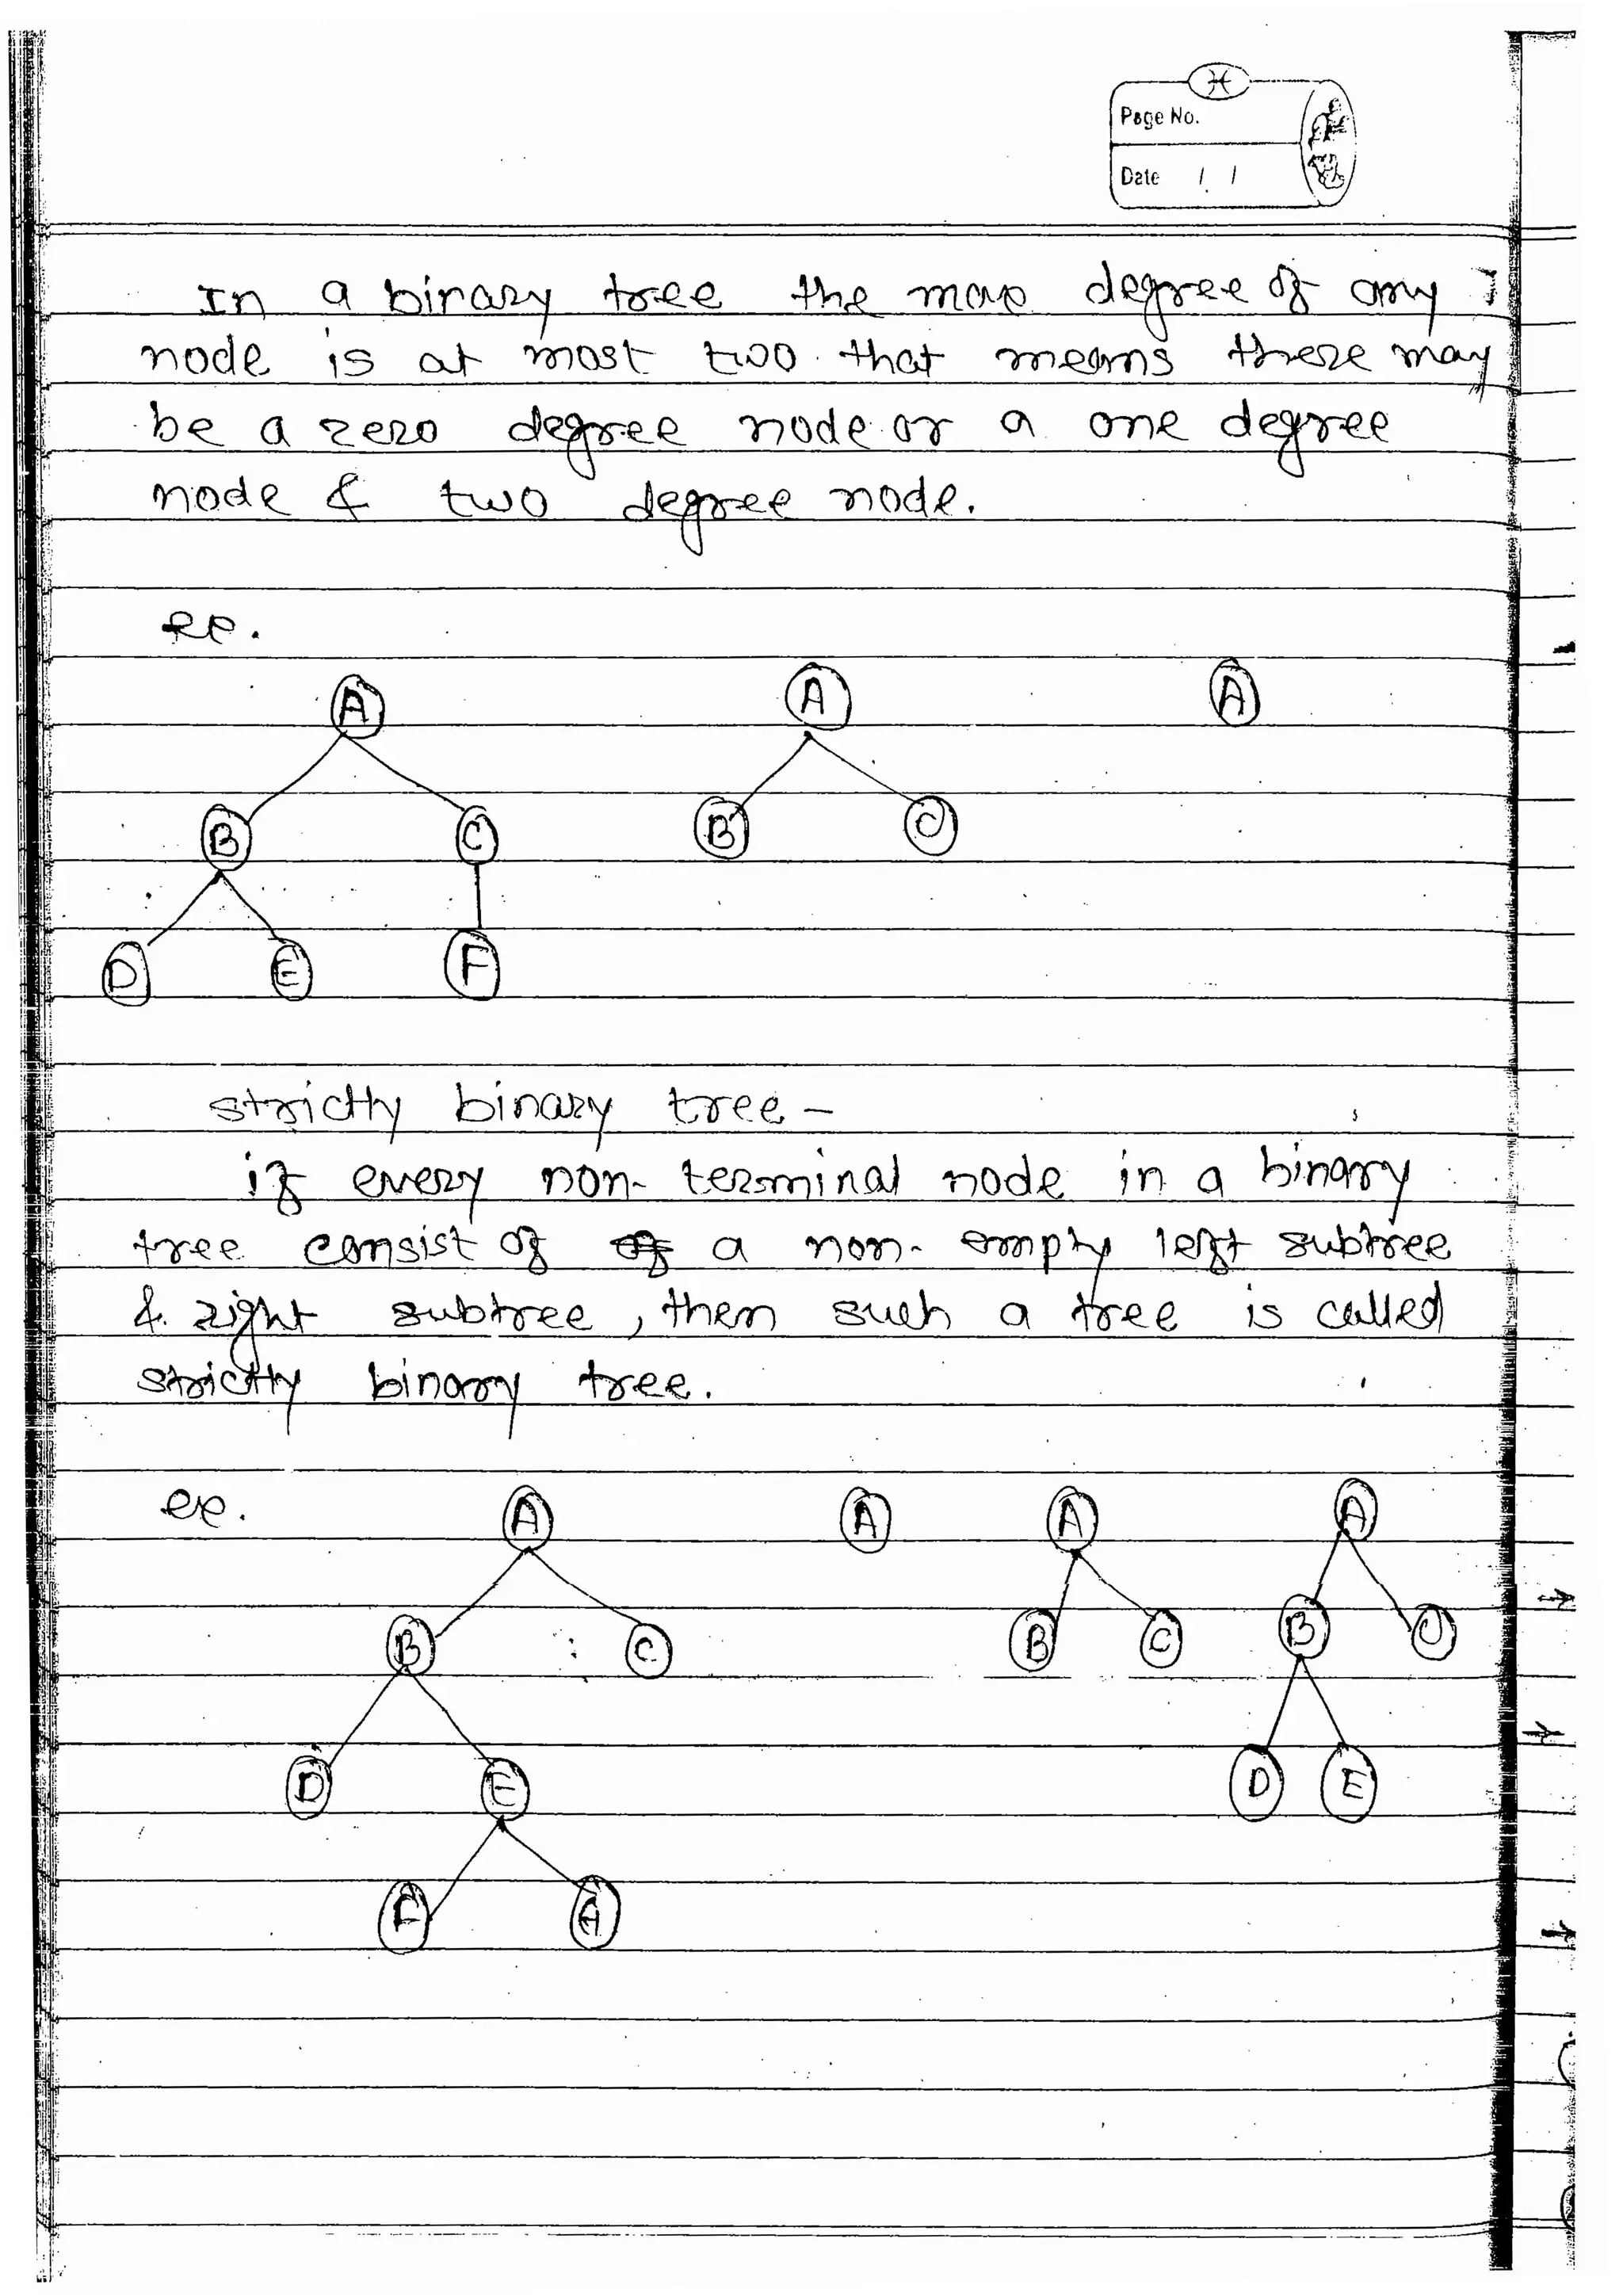 Page No.
Date / /
In a binary tree the max degree of any
node is at most two. that means there may
be a zero degree node or a one degree
node & two degree node.
ex.
A A A
B C B C
D E F
strictly binary tree -
if every non-terminal node in a binary
tree consist of of a non-empty left subtree
& right subtree, then such a tree is called
strictly binary tree.
ex. A A A A
B C B C B C
D E D E
F